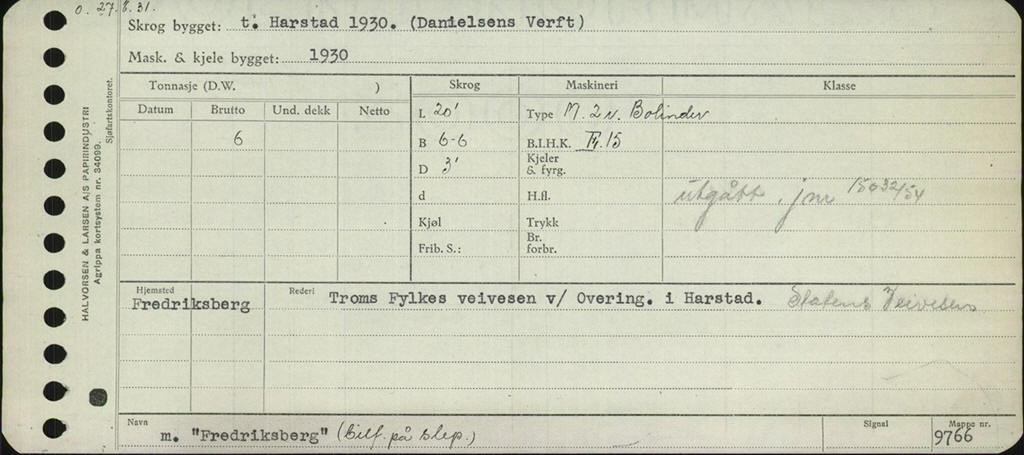 o. 27.8.31.
Skrog bygget: t. Harstad 1930. (Danielsens Verft)
Mask. & kjele bygget: 1930
HALVORSEN & LARSEN A/S PAPIRINDUSTRI
Agrippa kortsystem nr. 34099. Sjøfartskontoret.
Tonnasje (D.W. ) Skrog Maskineri Klasse
Datum Brutto Und. dekk Netto L 20' Type M. 2 v. Bolinder
6 B 6-6 B.I.H.K. 15
D 3' Kjeler & fyrg.
d H.fl. utgått. jnr 15032/54
Kjøl Trykk
Frib. S.: Br. forbr.
Hjemsted Rederi
Fredriksberg Troms Fylkes veivesen v/ Overing. i Harstad. Statens Veivesen
Navn Signal Mappe nr.
m. "Fredriksberg" (Bilf. på slep.) 9766